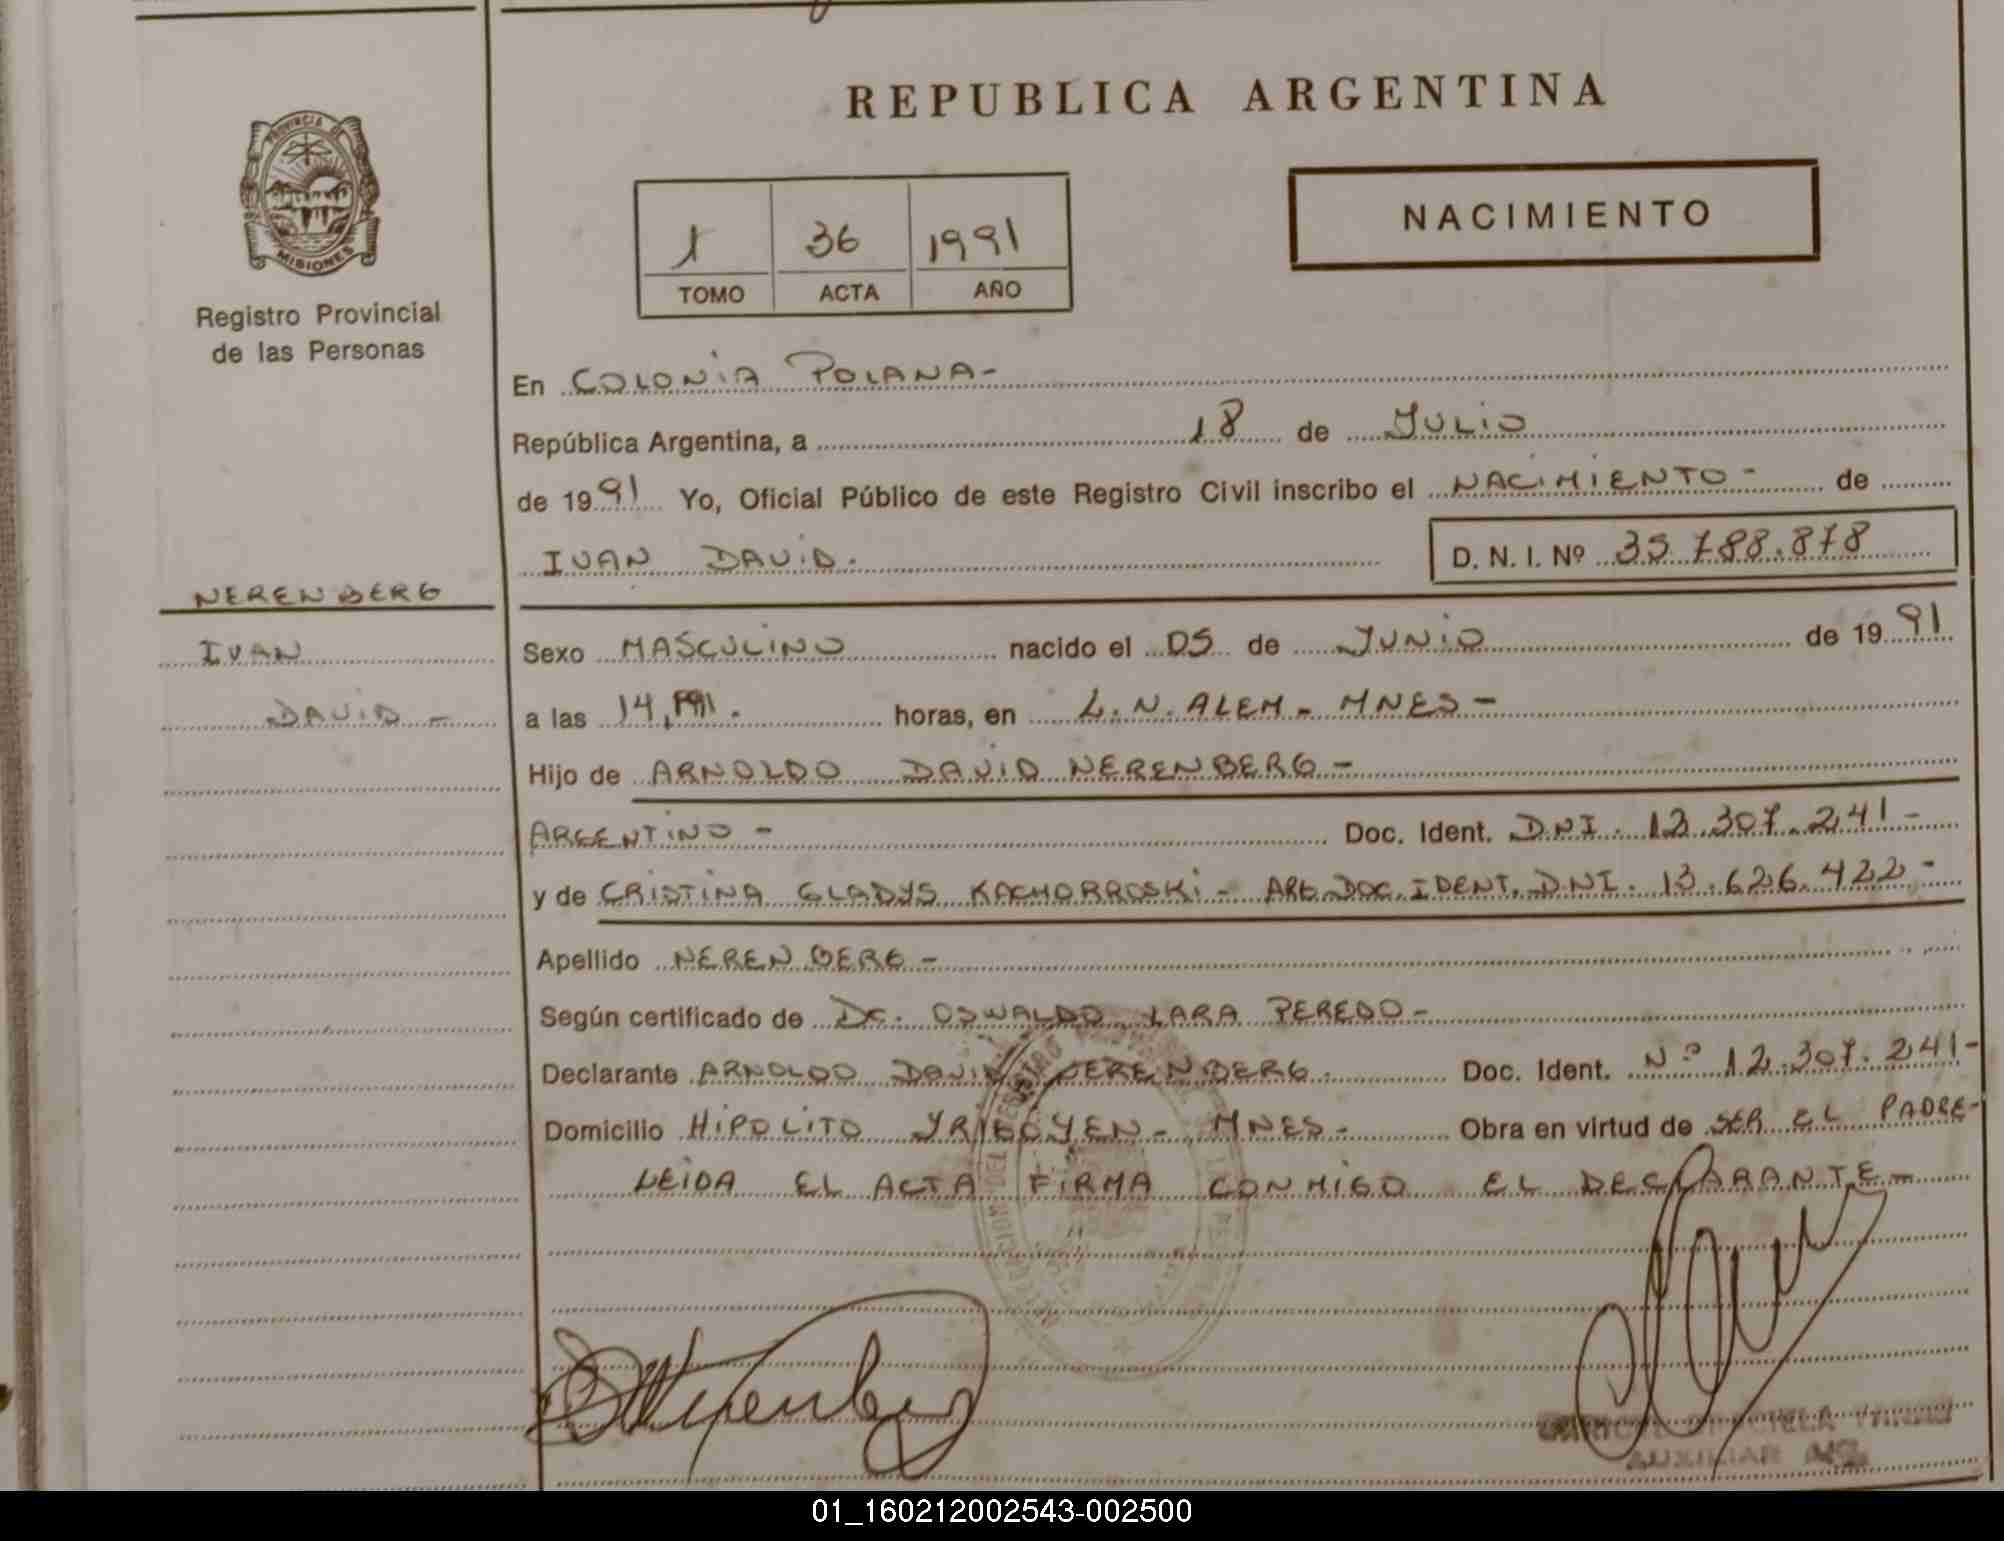 REPUBLICA ARGENTINA
PROVINCIA DE
MISIONES
Registro Provincial
de las Personas
NACIMIENTO
1 36 1991
TOMO ACTA AÑO
En COLONIA POLANA-
República Argentina, a 18 de JULIO
de 1991 Yo, Oficial Público de este Registro Civil inscribo el NACIMIENTO - de
IVAN DAVID. D. N. I. Nº 35.788.878
NERENBERG
IVAN
DAVID -
Sexo MASCULINO nacido el 05 de JUNIO de 1991
a las 14, horas, en L.N. ALEM - MNES -
Hijo de ARNOLDO DAVID NERENBERG -
ARGENTINO - Doc. Ident. DNI. 12.307.241 -
y de CRISTINA GLADYS KACHORROSKI - ARG. DOC. IDENT. DNI. 13.626.422 -
Apellido NERENBERG -
Según certificado de Dr. OSWALDO LARA PEREDO -
Declarante ARNOLDO DAVID NERENBERG. Doc. Ident. Nº 12.307.241 -
Domicilio HIPOLITO YRIGOYEN - MNES - Obra en virtud de SER EL PADRE -
LEIDA EL ACTA FIRMA CONMIGO EL DECLARANTE -
AUXILIAR
01_160212002543-002500